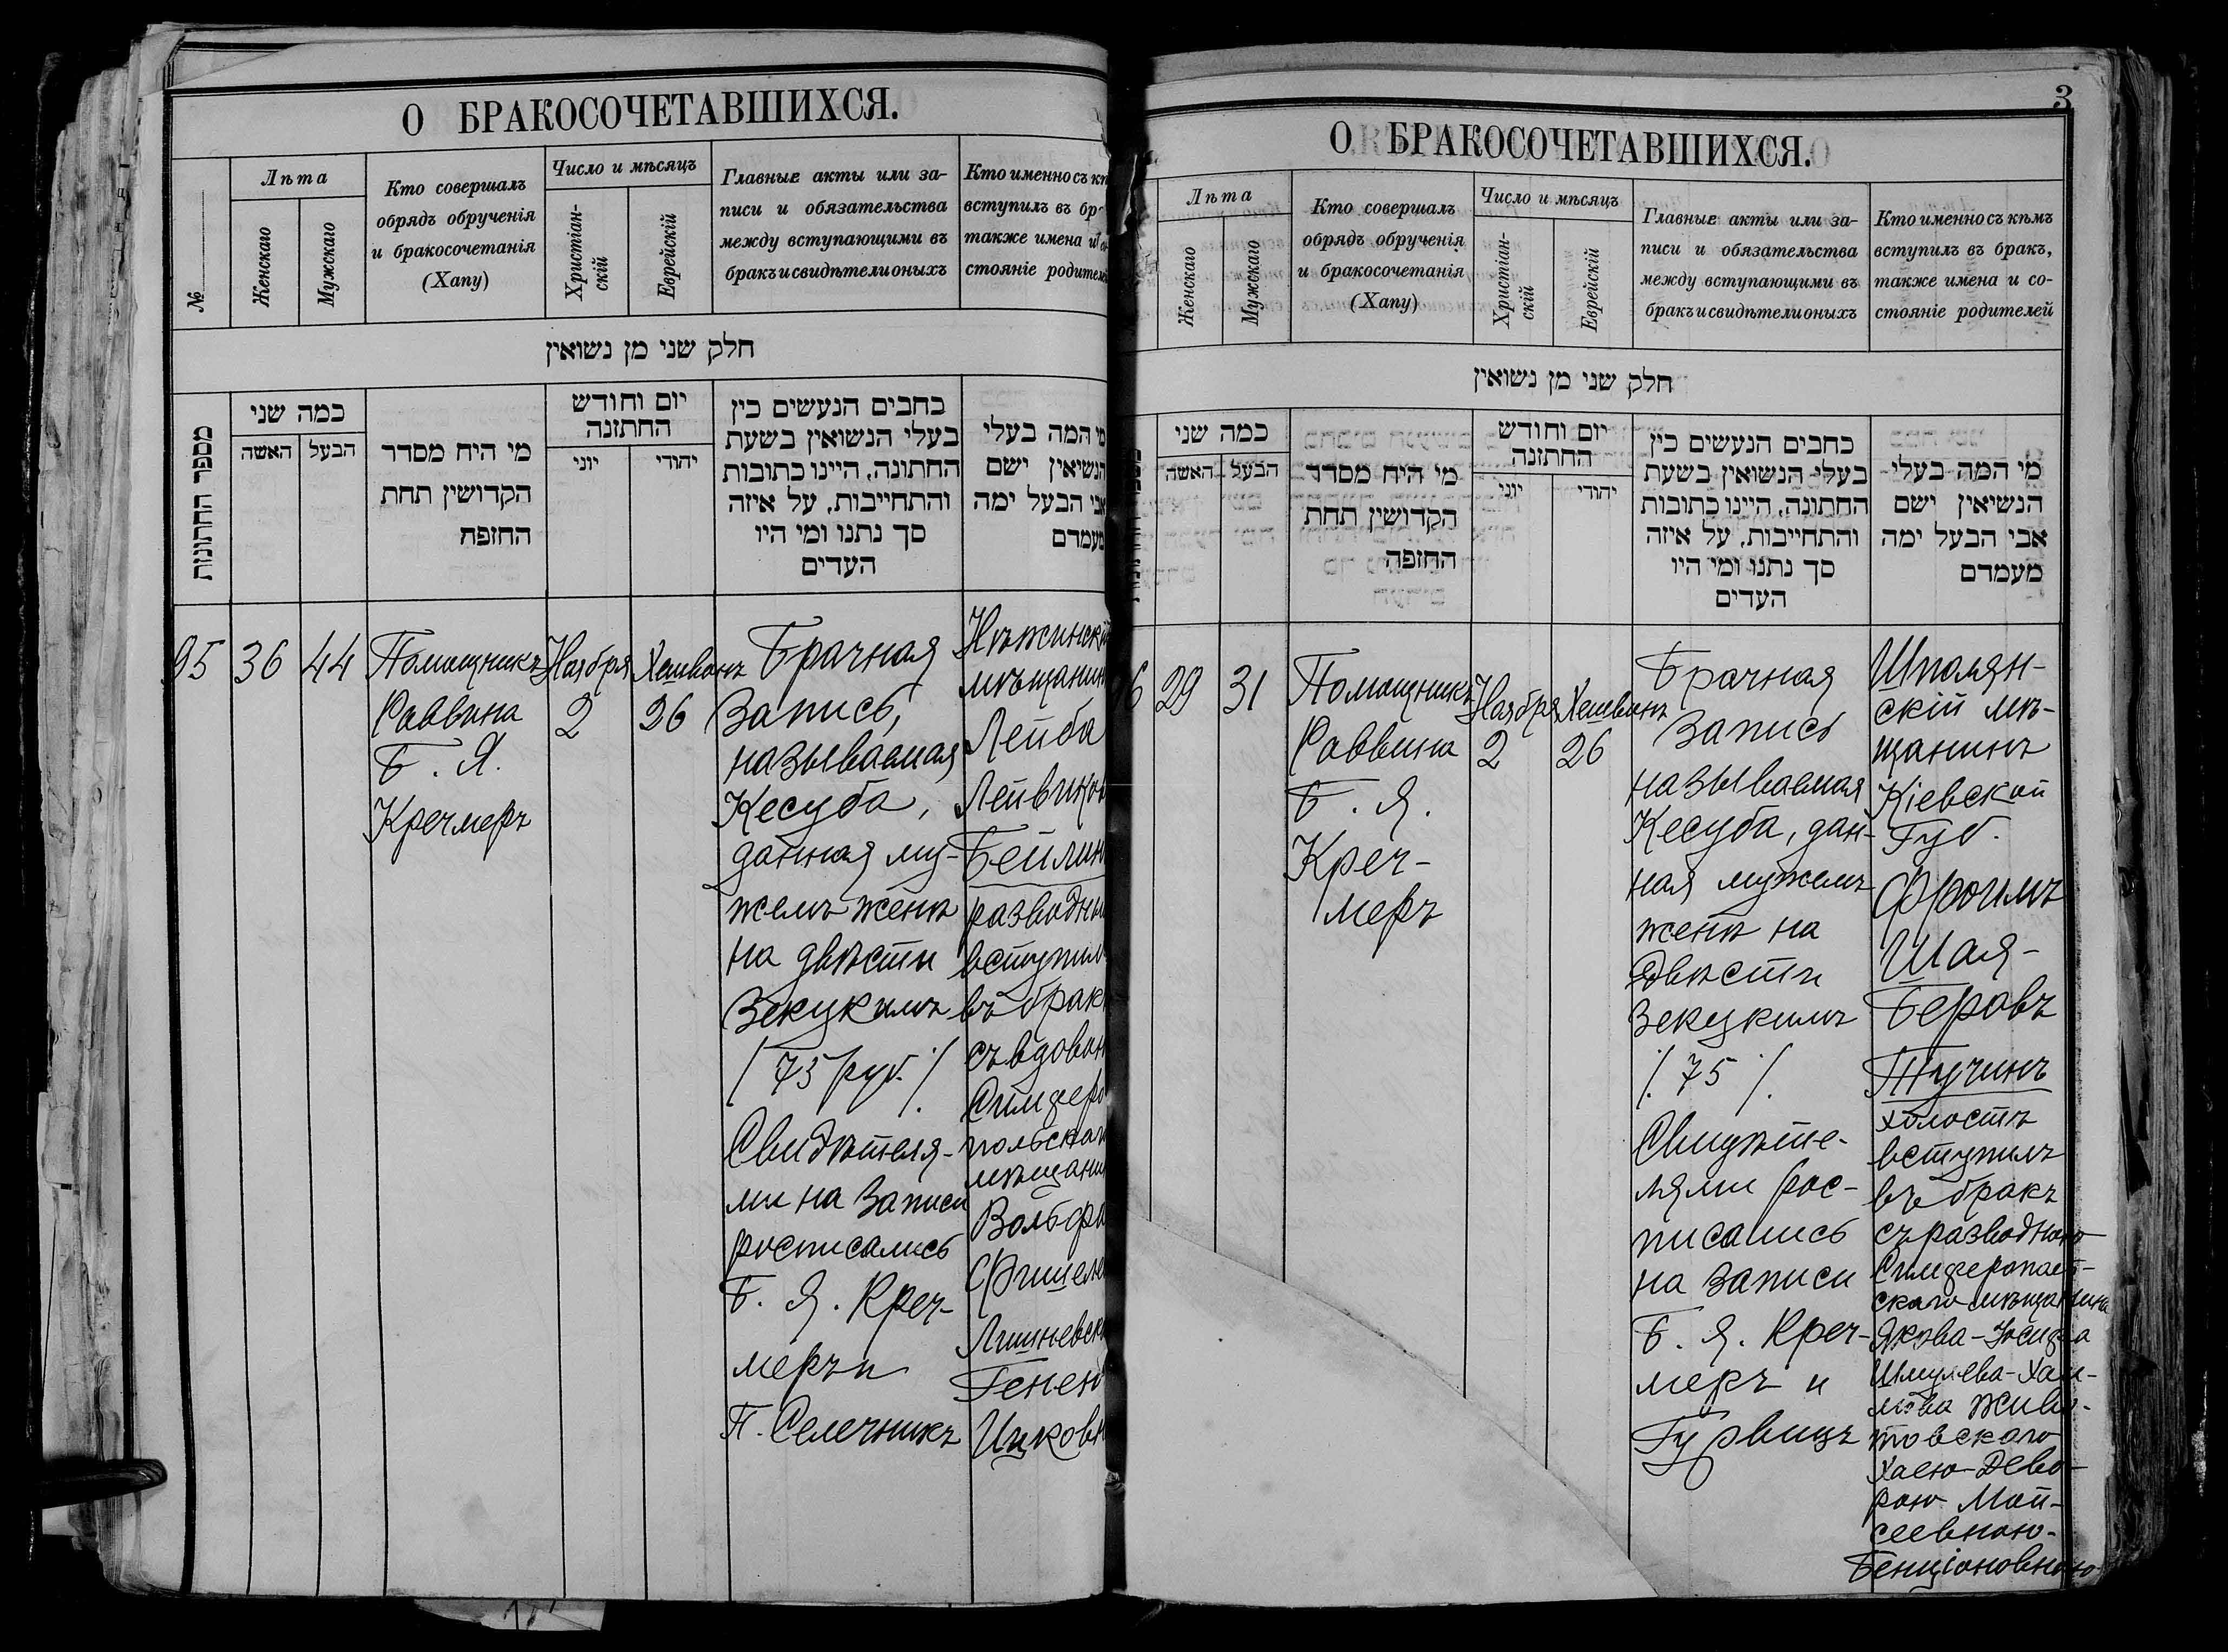 О БРАКОСОЧЕТАВШИХСЯ.
№
Лѣта
Женскаго
Мужскаго
Кто совершалъ
обрядъ обрученія
и бракосочетанія
(Хапу)
Число и мѣсяцъ
Христіан-
скій
Еврейскій
Главные акты или за-
писи и обязательства
между вступающими въ
бракъ и свидѣтели оныхъ
Кто именно съ
вступилъ въ
также имена и
стояніе
חלק שני מן נשואין
מספר החתונות
כמה שני
האשה
הבעל
מי היח מסדר
הקדושין תחת
החזפח
יום וחודש
החתזנה
יוני
יהודי
כחבים הנעשים כין
בעלי הנשואין בשעת
החתונה, היינו כתובות
והתחייבות, על איזה
סך נתנו ומי היו
העדים
המה בעלי
ישם
הבעל ימה
95
36
44
Помощникъ
Раввина
Б. Я.
Кречмеръ
Ноября
2
Хешванъ
26
Брачная
Запись,
называемая
Кесуба,
данная му-
жемъ женѣ
на двѣсти
Зекукимъ
/ 75 руб. /.
Свидѣтеля-
ми на Записи
росписались
Б. Я. Креч-
меръ и
П. Селечникъ
Лейба
въ
О БРАКОСОЧЕТАВШИХСЯ.
3
Лѣта
Женскаго
Мужскаго
Кто совершалъ
обрядъ обрученія
и бракосочетанія
(Хапу)
Число и мѣсяцъ
Христіан-
скій
Еврейскій
Главные акты или за-
писи и обязательства
между вступающими въ
бракъ и свидѣтели оныхъ
Кто именно съ кѣмъ
вступилъ въ бракъ,
также имена и со-
стояніе родителей
חלק שני מן נשואין
כמה שני
האשה
הבעל
מי היח מסדר
הקדושין תחת
החזפה
יום וחודש
החתזנה
יוני
יהודי
כחבים הנעשים כין
בעלי הנשואין בשעת
החתונה, היינו כתובות
והתחייבות, על איזה
סך נתנו ומי היו
העדים
מי המה בעלי
הנשיאין ישם
אבי הבעל ימה
מעמדם
29
31
Помощникъ
Раввина
Б. Я.
Креч-
меръ
Ноября
2
Хешванъ
26
Брачная
Запись
называемая
Кесуба, дан-
ная мужемъ
женѣ на
двѣсти
Зекукимъ
/. 75 /.
Свидѣте-
лями рос-
писались
на Записи
Б. Я. Креч-
меръ и
Гурвицъ
Шполян-
скій мѣ-
щанинъ
Кіевской
Губ.
Фроимъ
Шая-
Беровъ
Тучинъ
холостъ
вступилъ
въ бракъ
съ разводною
Симферополь-
скаго мѣщанина
Якова-Іосифа
Шмулева-Хаи-
мова Живо-
товскаго
Хаею-Дево-
рою Мои-
сеевною-
Бенціоновною